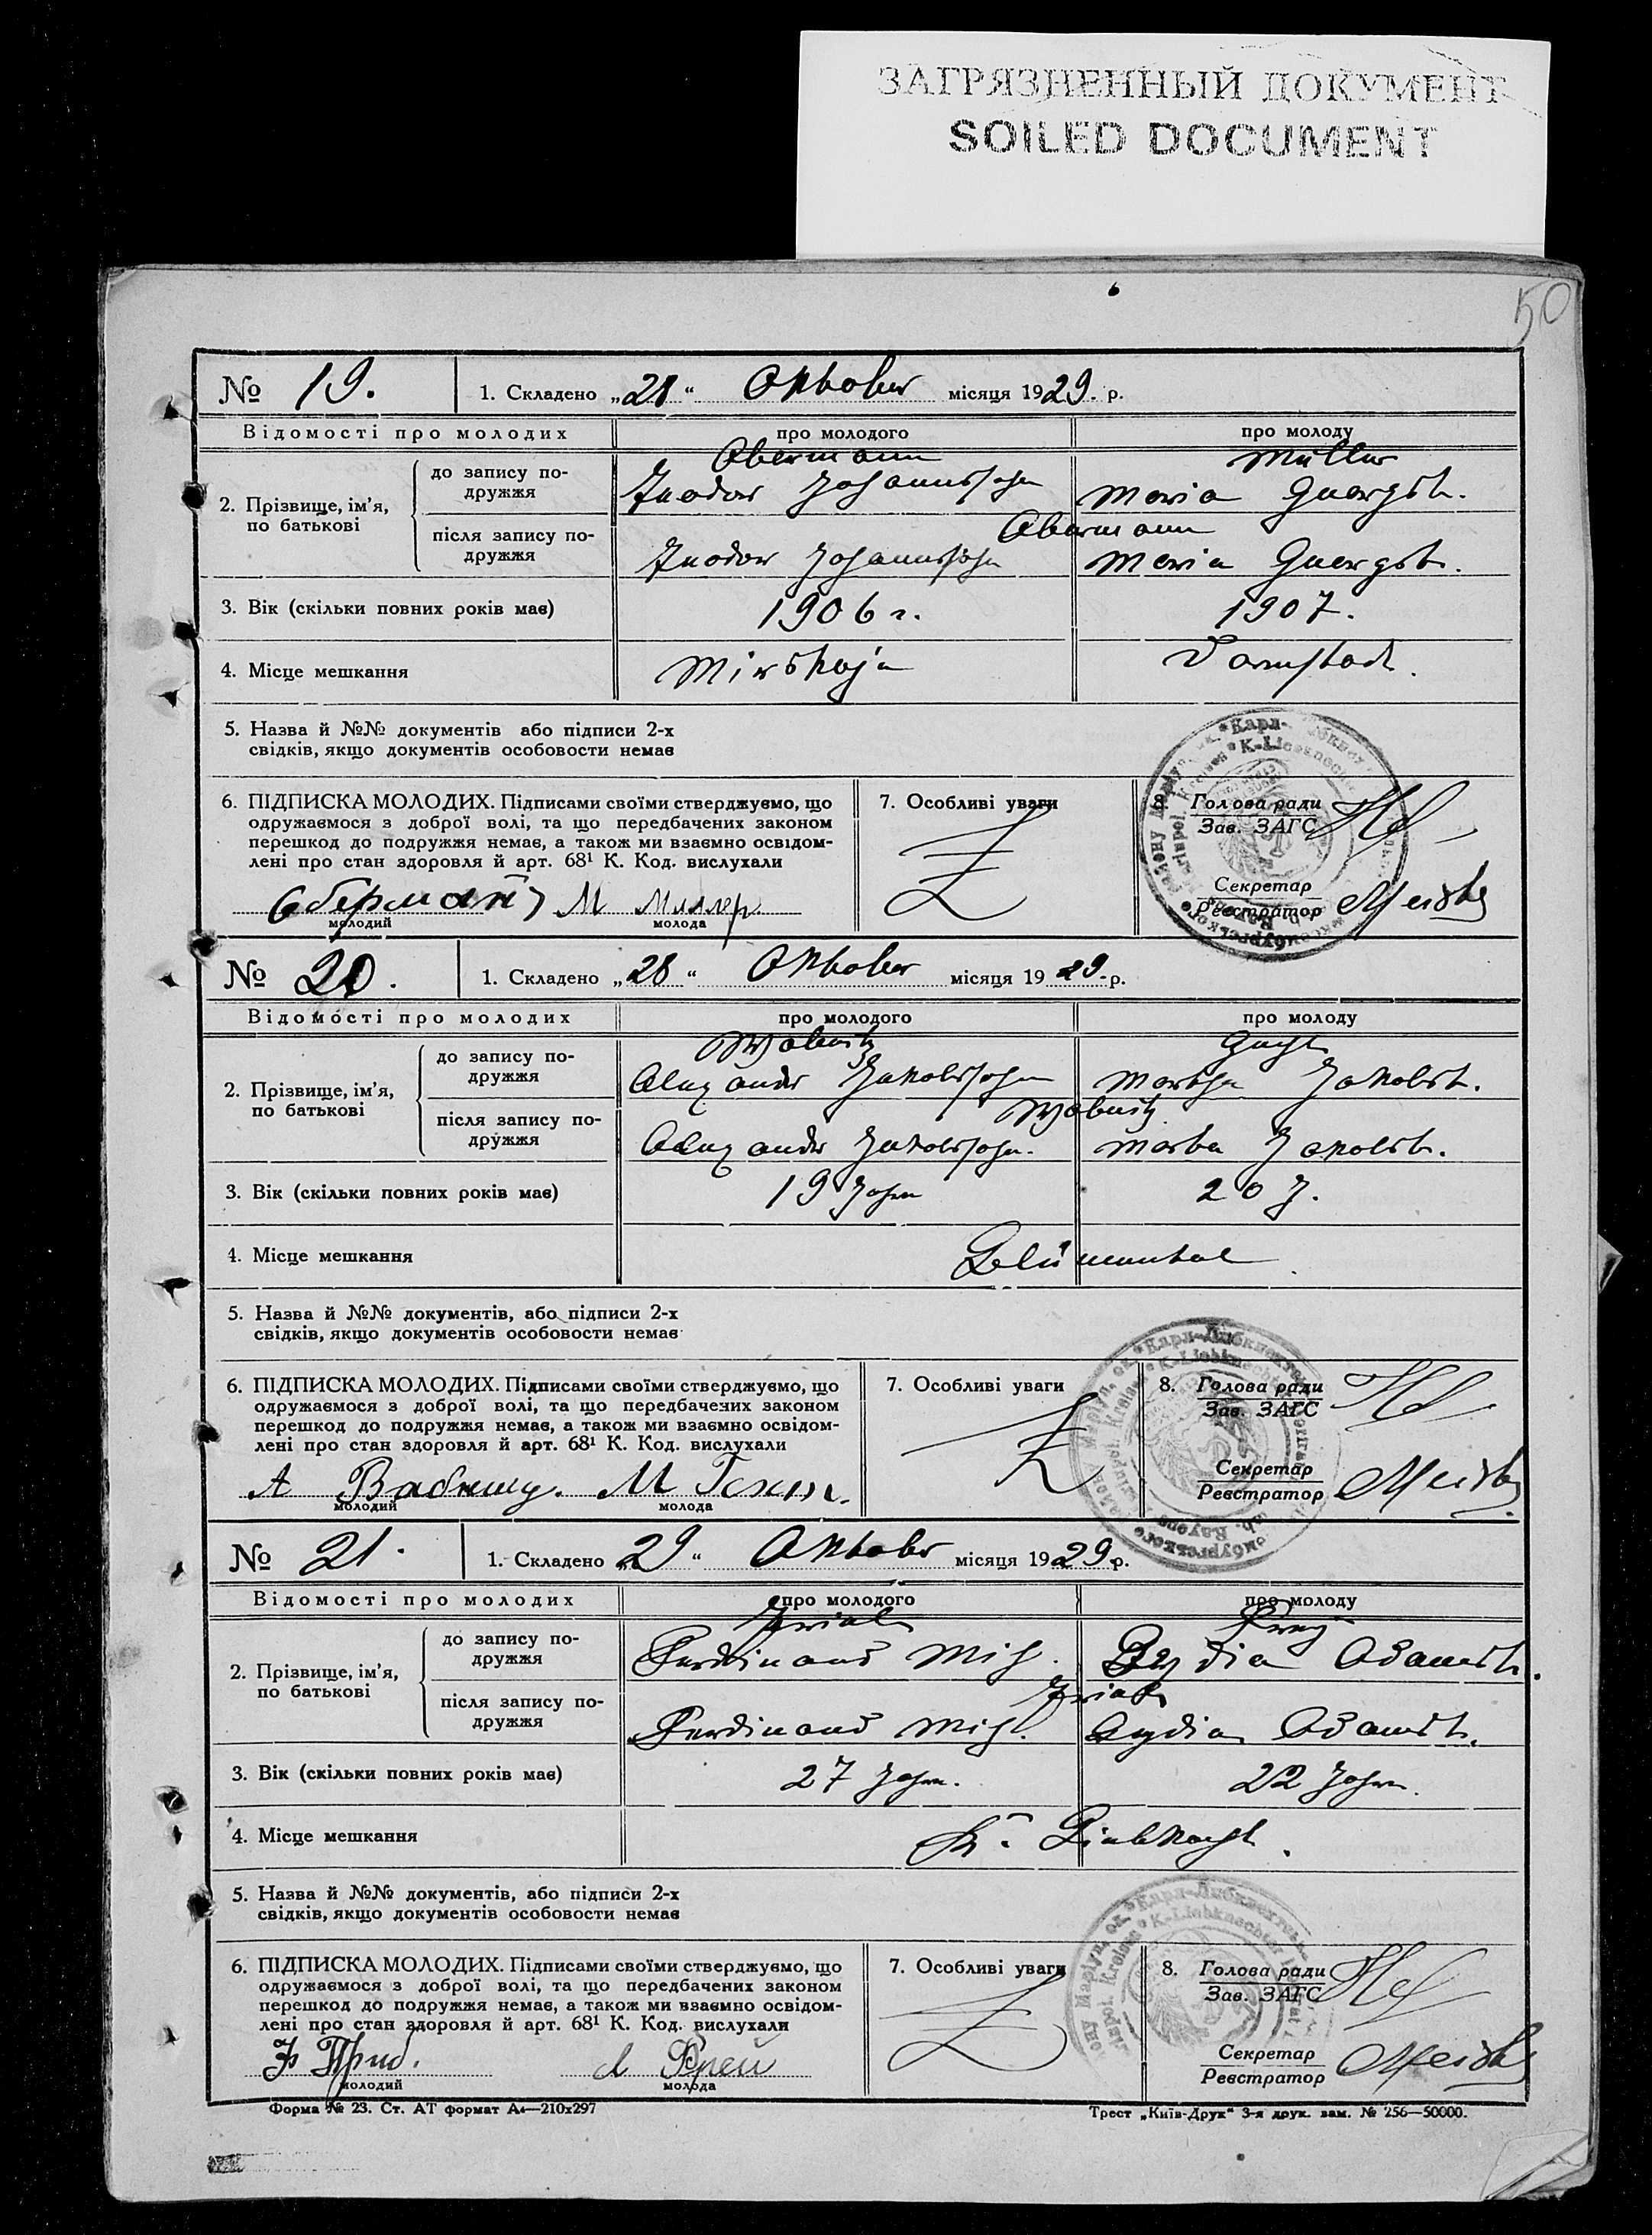 ЗАГРЯЗНЕННЫЙ ДОКУМЕНТ
SOILED DOCUMENT
50
№ 19. 1. Складено „28“ Oktober місяця 1929. р.
Відомості про молодих про молодого про молоду
Obermann Müller
2. Прізвище, ім’я, по батькові до запису по-дружжя Teodor Johannssohn Maria Georgst.
Obermann
після запису по-дружжя Teodor Johannssohn Maria Georgst.
3. Вік (скільки повних років має) 1906 г. 1907.
4. Місце мешкання Mirskaja Darmstadt.
5. Назва й №№ документів або підписи 2-х
свідків, якщо документів особовости немає
6. ПІДПИСКА МОЛОДИХ. Підписами своїми стверджуємо, що
одружаємося з доброї волі, та що передбачених законом
перешкод до подружжя немає, а також ми взаємно освідом-
лені про стан здоровля й арт. 68¹ К. Код. вислухали
7. Особливі уваги
8. Голова ради
Зав. ЗАГС
Секретар
Реєстратор
Оберман М Миллер
молодий молода
№ 20. 1. Складено „28“ Oktober місяця 1929. р.
Відомості про молодих про молодого про молоду
Wabnitz
2. Прізвище, ім’я, по батькові до запису по-дружжя Alexander Jakobssohn Martha Jakobst.
Wabnitz
після запису по-дружжя Alexander Jakobssohn. Marta Jakobst.
3. Вік (скільки повних років має) 19 Jahre 20 J.
4. Місце мешкання Blumental.
5. Назва й №№ документів, або підписи 2-х
свідків, якщо документів особовости немає
6. ПІДПИСКА МОЛОДИХ. Підписами своїми стверджуємо, що
одружаємося з доброї волі, та що передбачених законом
перешкод до подружжя немає, а також ми взаємно освідом-
лені про стан здоровля й арт. 68¹ К. Код. вислухали
7. Особливі уваги
8. Голова ради
Зав. ЗАГС
Секретар
Реєстратор
А Вабниц. М
молодий молода
№ 21. 1. Складено „29“ Oktober місяця 1929 р.
Відомості про молодих про молодого про молоду
Frey
2. Прізвище, ім’я, по батькові до запису по-дружжя Ferdinand Mich. Lydia Adamst.
після запису по-дружжя Ferdinand Mich. Lydia Adamst.
3. Вік (скільки повних років має) 27 Jahre. 22 Jahre.
4. Місце мешкання K. Liebknecht.
5. Назва й №№ документів, або підписи 2-х
свідків, якщо документів особовости немає
6. ПІДПИСКА МОЛОДИХ. Підписами своїми стверджуємо, що
одружаємося з доброї волі, та що передбачених законом
перешкод до подружжя немає, а також ми взаємно освідом-
лені про стан здоровля й арт. 68¹ К. Код. вислухали
7. Особливі уваги
8. Голова ради
Зав. ЗАГС
Секретар
Реєстратор
Ф Триб. Л Фрей
молодий молода
Форма № 23. Ст. АТ формат А4—210х297 Трест „Київ-Друк“ 3-я друк. зам. № 256—50000.